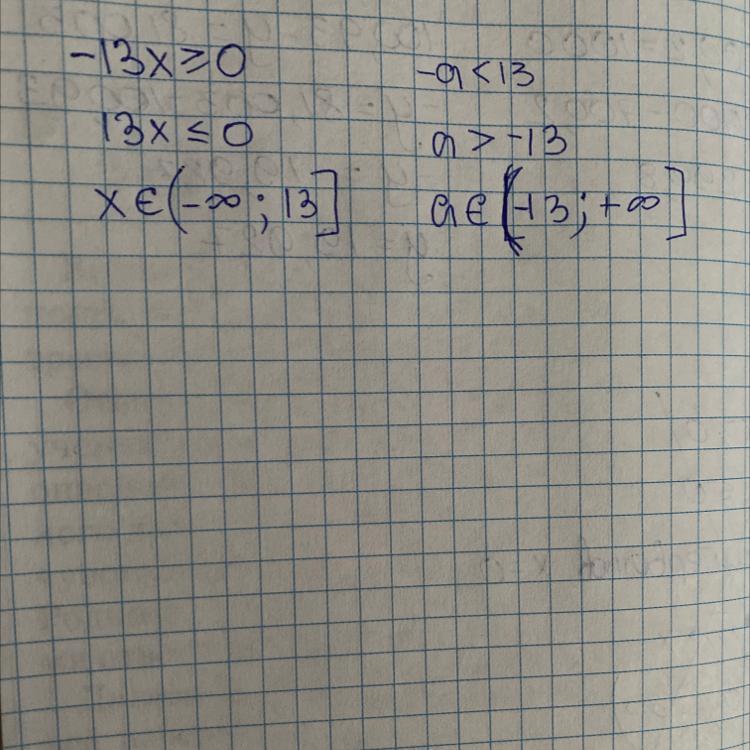 -13x ≥ 0
13x ≤ 0
x ∈ (-∞ ; 13]
-a < 13
a > -13
a ∈ (-13; +∞]